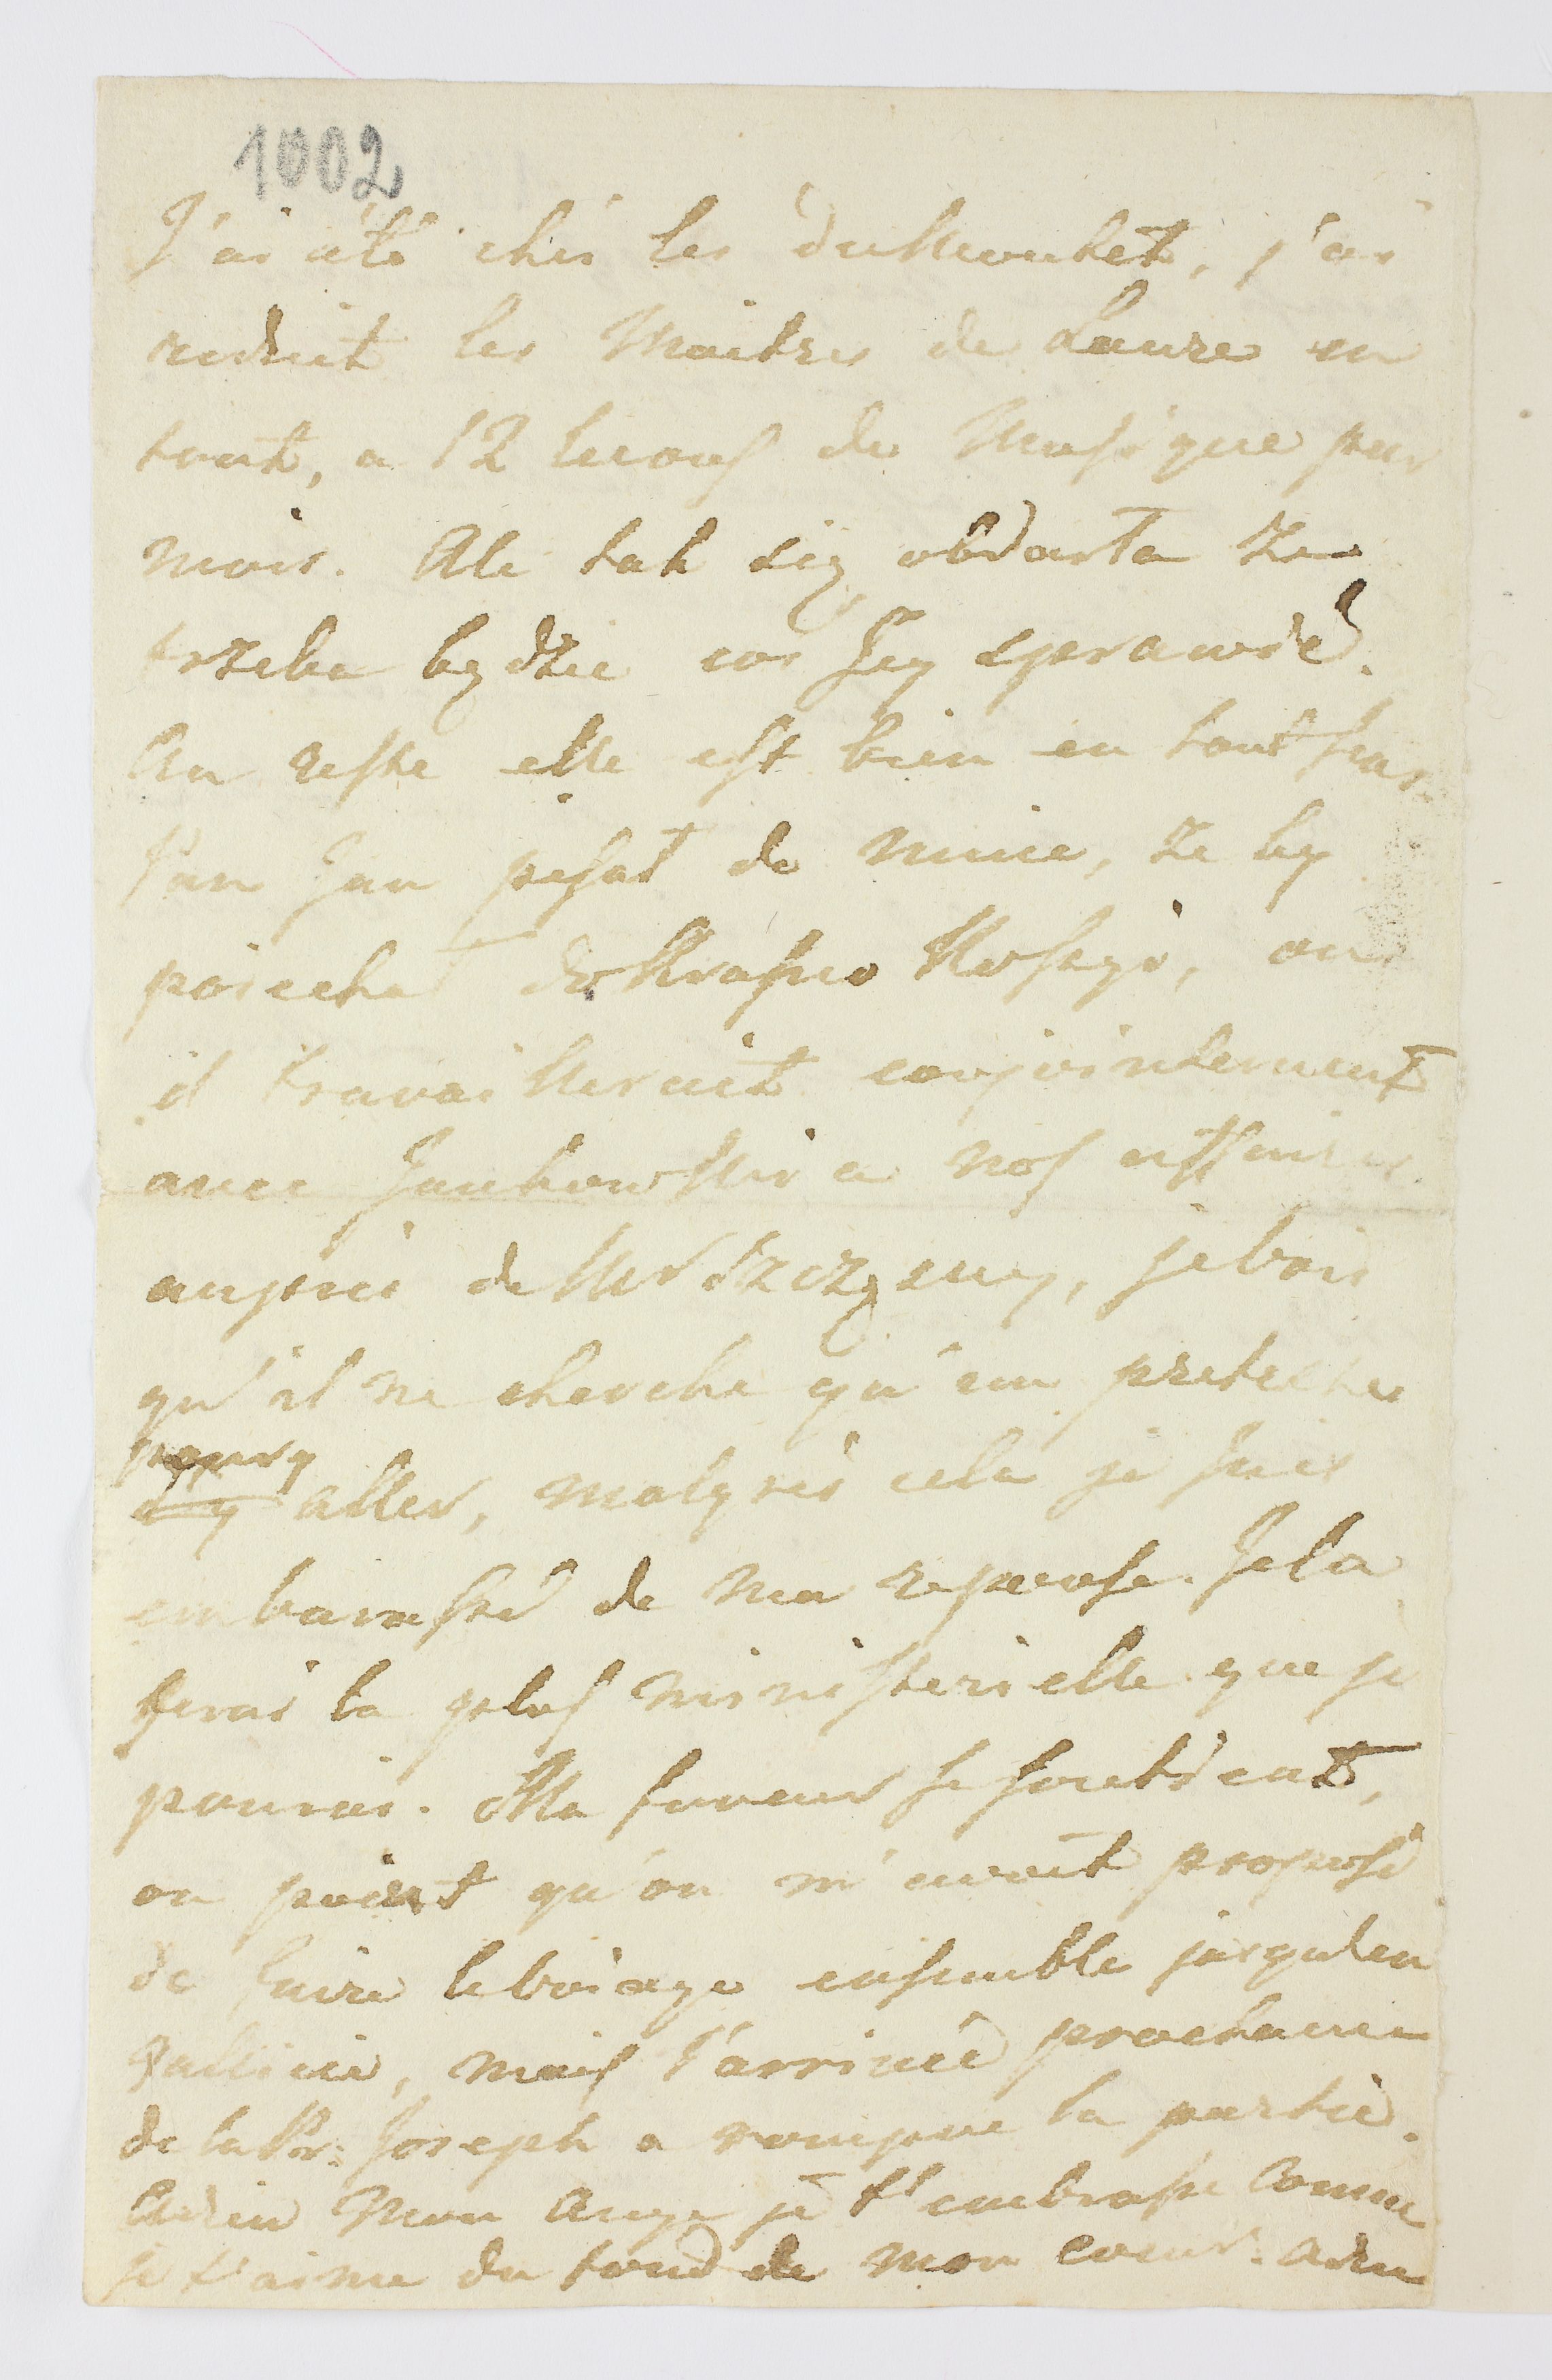 1002
J'ai été chés les duMoutet, j'ai
reduit les Maitres de Laure en
tout, a 12 lecons de Musique par
mois. Ale tak się obdarła że
trzeba będzie cos Jey sprawić.
Au reste elle est bien en tout sens.
Pan Jan pisał do mnie, że by
poiechał do Krasno
il travailleroit conjointement
avec Jankowski a nos affaires
auprès de Mr Szczęsny, je vois
qu'il ne cherche qu'un pretexte
pour y aller, malgrès cela je suis
embarassé de ma reponse. Je la
ferai la plus ministerielle que je
pourai. Ma faveur se soutient,
au point qu'on m'avoit proposé
de faire le voiage ensemble jusqu'en
Gallicie, mais l'arrivée prochaine
de la Pr: Joseph a rompue la partie.
Adieu Mon Ange je t'embrasse comme
je t'aime du fond de mon coeur. Adieu